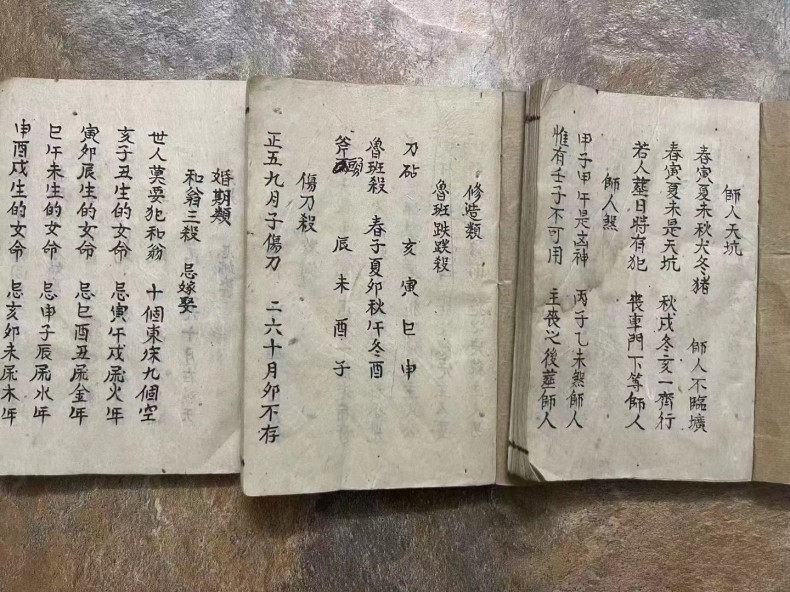 師人天坑
春寅夏未秋犬冬猪 師人不臨壙
春寅夏未是天坑 秋戌冬亥一齊行
若人葬日時有犯 喪車門下等師人
師人煞
甲子甲午是凶神 丙子乙未煞師人
惟有壬子不可用 主喪之後葬師人
修造類
魯班跌蹼殺
刀砧 亥寅巳申
魯班殺 春子夏卯秋午冬酉
斧頭 辰未酉子
傷刀殺
正五九月子傷刀 二六十月卯不存
婚期類
和翁三殺 忌嫁娶
世人莫要犯和翁 十個東床九個空
亥子丑生的女命 忌寅午戌属火年
寅卯辰生的女命 忌巳酉丑属金年
巳午未生的女命 忌申子辰属水年
申酉戌生的女命 忌亥卯未属木年